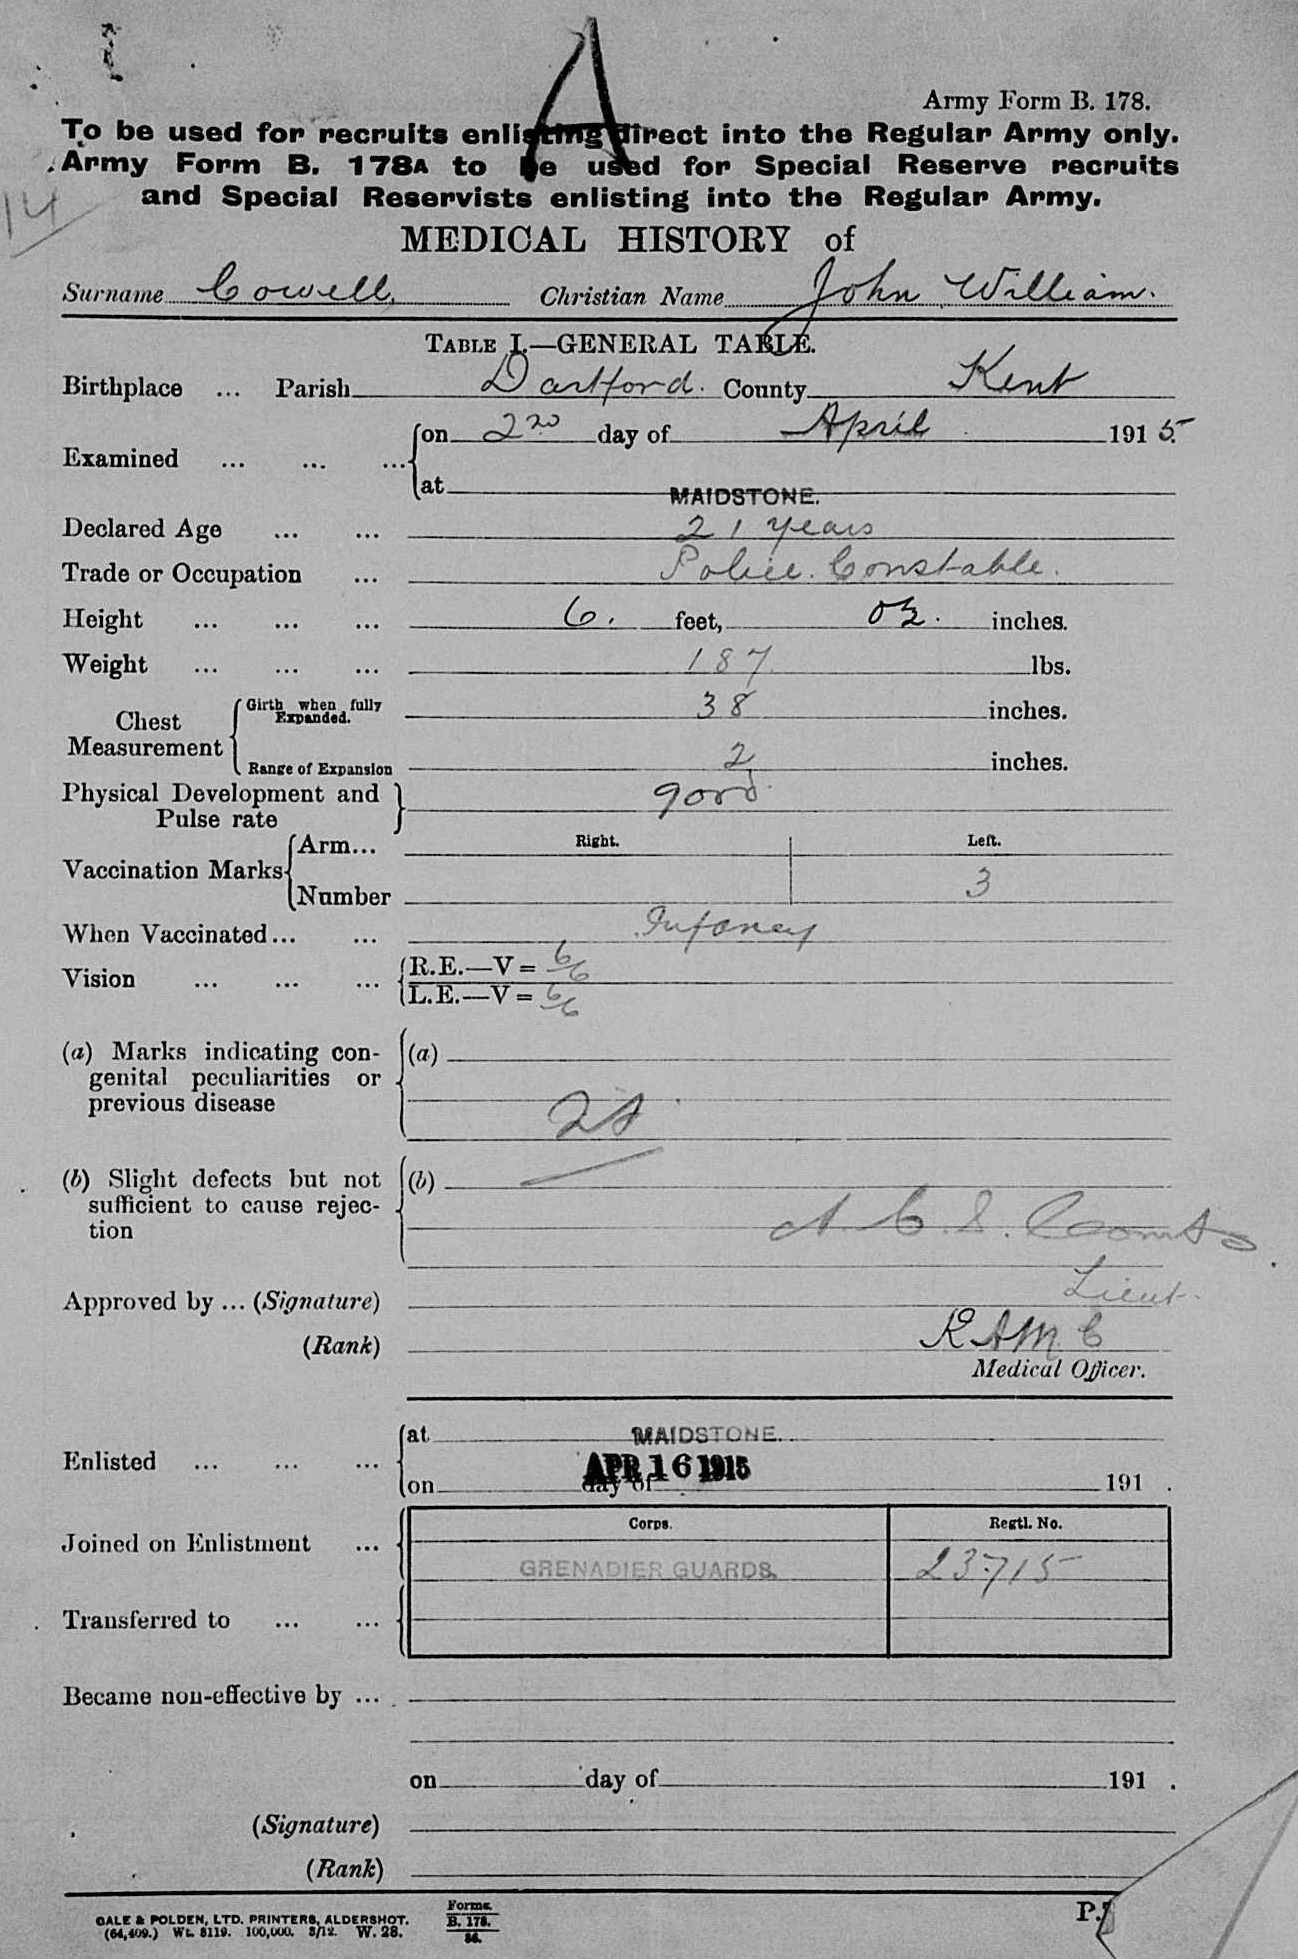 A
Army Form B. 178.
To be used for recruits enlisting direct into the Regular Army only.
Army Form B. 178A to be used for Special Reserve recruits
and Special Reservists enlisting into the Regular Army.
14
MEDICAL HISTORY of
Surname Cowell. Christian Name John William.
TABLE I.—GENERAL TABLE.
Birthplace ... Parish Dartford. County Kent
Examined ... ... ... on 2nd day of April 1915.
at MAIDSTONE.
Declared Age ... ... 21 years
Trade or Occupation ... Police. Constable.
Height ... ... ... 6. feet, 0½. inches.
Weight ... ... ... 187 lbs.
Chest Measurement Girth when fully Expanded. 38 inches.
Range of Expansion 2 inches.
Physical Development and Pulse rate good.
Vaccination Marks Arm... Right. Left.
Number 3
When Vaccinated... ... Infancy
Vision ... ... ... R.E.—V = 6/6
L.E.—V = 6/6
(a) Marks indicating con- (a)
genital peculiarities or
previous disease
(b) Slight defects but not (b)
sufficient to cause rejec-
tion
Approved by ... (Signature) Lieut.
(Rank) RAMC
Medical Officer.
Enlisted ... ... ... at MAIDSTONE.
on APR 16 1915 day of 191 .
Corps. Regtl. No.
Joined on Enlistment ... GRENADIER GUARDS. 23715
Transferred to ... ...
Became non-effective by ...
on day of 191 .
(Signature)
(Rank)
GALE & POLDEN, LTD. PRINTERS, ALDERSHOT. Forms.
(64,409.) Wt. 8119. 100,000. 3/12. W. 28. B. 178.